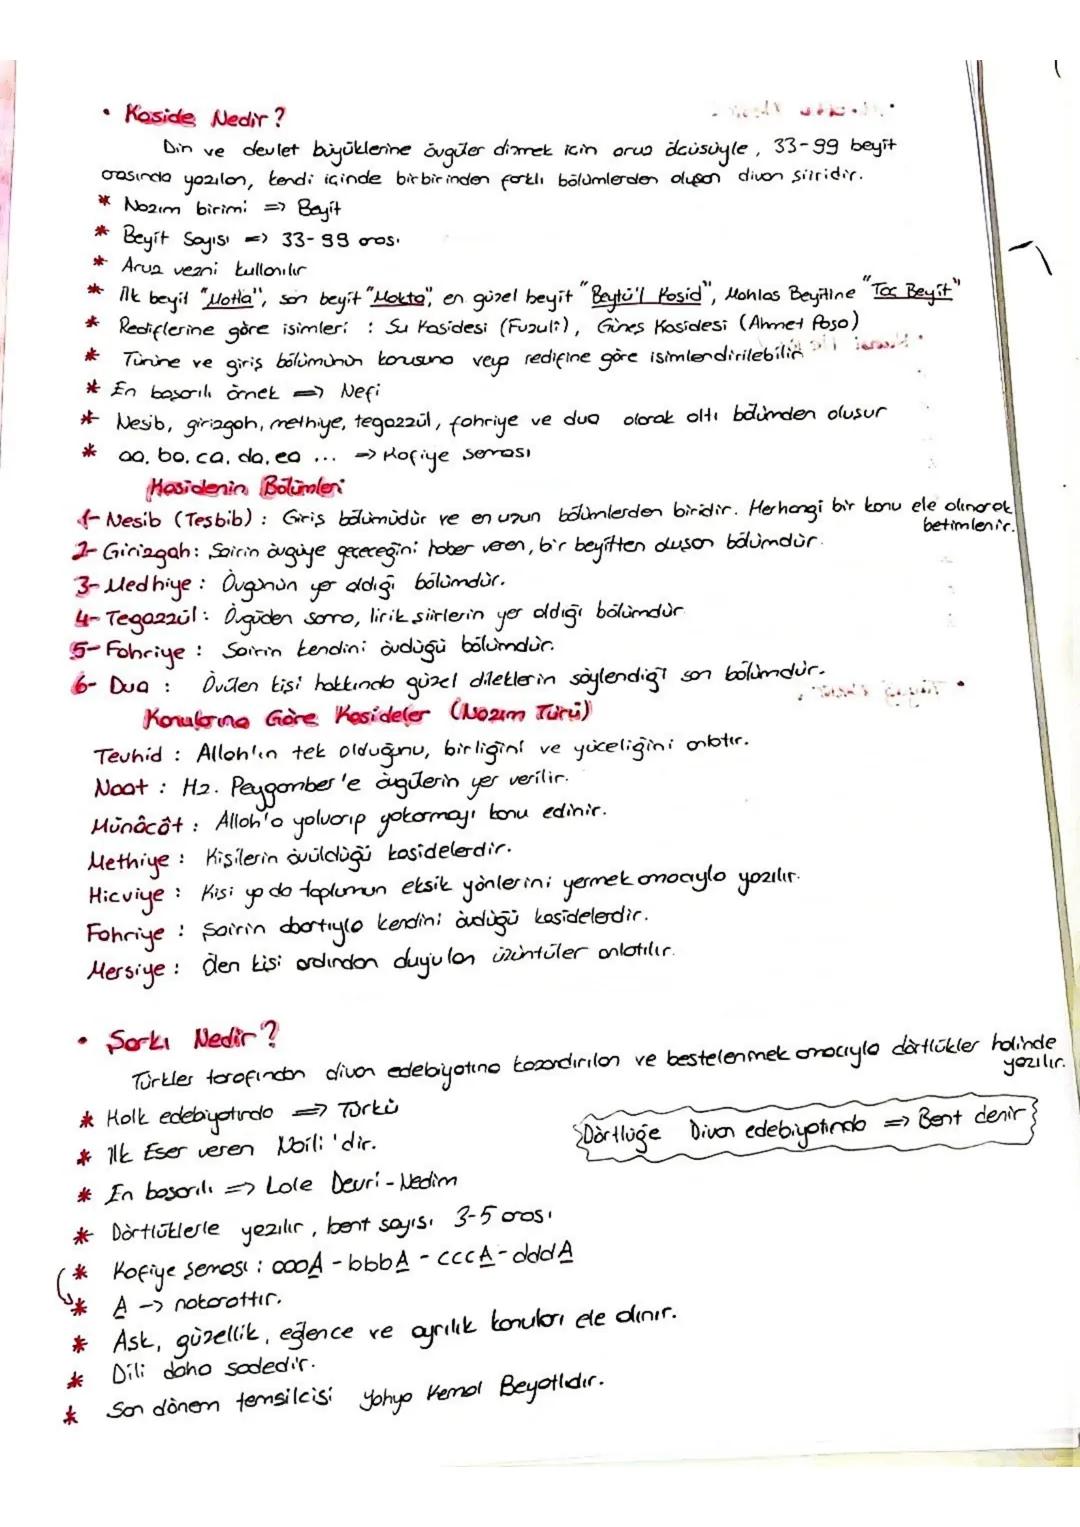 • Kaside Nedir?
Din ve devlet büyüklerine övgüler dizmek için aruz ölçüsüyle, 33-99 beyit
arasında yazılan, kendi içinde birbirinden farklı bölümlerden oluşan divan şiiridir.
* Nazım birimi => Beyit
* Beyit Sayısı => 33-99 arası
* Aruz vezni kullanılır
* İlk beyit "Matla", son beyit "Makta", en güzel beyit "Beytü'l Kasid", Mahlas Beyitine "Taç Beyit"
* Rediflerine göre isimleri : Su Kasidesi (Fuzuli), Güneş Kasidesi (Ahmet Paşa)
* Türüne ve giriş bölümünün konusuna veya redifine göre isimlendirilebilir
* En başarılı örnek => Nefi
* Nesib, girizgah, methiye, tegazzül, fahriye ve dua olarak altı bölümden oluşur
* aa, ba, ca, da, ea ... => Kafiye şeması
Kasidenin Bölümleri
1- Nesib (Teşbib) : Giriş bölümüdür ve en uzun bölümlerden biridir. Herhangi bir konu ele alınarak
betimlenir.
2- Girizgah: Şairin övgüye geçeceğini haber veren, bir beyitten oluşan bölümdür.
3- Medhiye : Övgünün yer aldığı bölümdür.
4- Tegazzül : Övgüden sonra, lirik şiirlerin yer aldığı bölümdür
5- Fahriye : Şairin kendini övdüğü bölümdür.
6- Dua : Övülen kişi hakkında güzel dileklerin söylendiği son bölümdür.
Konularına Göre Kasideler (Nazım Türü)
Tevhid : Allah'ın tek olduğunu, birliğini ve yüceliğini anlatır.
Naat : Hz. Peygamber'e övgülerin yer verilir.
Münâcât : Allah'a yalvarıp yakarmayı konu edinir.
Methiye : Kişilerin övüldüğü kasidelerdir.
Hicviye : Kişi ya da toplumun eksik yönlerini yermek amacıyla yazılır.
Fahriye : Şairin abartıyla kendini övdüğü kasidelerdir.
Mersiye : Ölen kişi ardından duyulan üzüntüler anlatılır.
• Şarkı Nedir?
Türkler tarafından divan edebiyatına kazandırılan ve bestelenmek amacıyla dörtlükler halinde
yazılır.
* Halk edebiyatında => Türkü
Dörtlüğe Divan edebiyatında => Bent denir
* İlk Eser veren Naili'dir.
* En başarılı => Lale Devri - Nedim
* Dörtlüklerle yazılır, bent sayısı 3-5 arası
* Kafiye şeması : aaaA - bbbA - cccA - dddA
* A -> nakarattır.
* Aşk, güzellik, eğlence ve ayrılık konuları ele alınır.
* Dili daha sadedir.
* Son dönem temsilcisi Yahya Kemal Beyatlıdır.